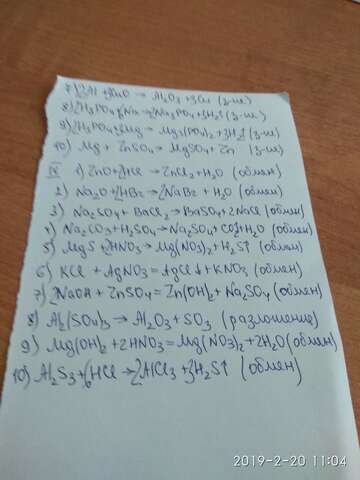 7) 2Al + 3CuO → Al2O3 + 3Cu (з-ие)
8) 2H3PO4 + 6Na → 2Na3PO4 + 3H2↑ (з-ие)
9) 2H3PO4 + 3Mg → Mg3(PO4)2 + 3H2↑ (з-ие)
10) Mg + ZnSO4 → MgSO4 + Zn (з-ие)
IV 1) ZnO + 2HCl → ZnCl2 + H2O (обмен)
2) Na2O + 2HBr → 2NaBr + H2O (обмен)
3) Na2SO4 + BaCl2 → BaSO4 + 2NaCl (обмен)
4) Na2CO3 + H2SO4 → Na2SO4 + CO2↑ + H2O (обмен)
5) MgS + 2HNO3 → Mg(NO3)2 + H2S↑ (обмен)
6) KCl + AgNO3 = AgCl↓ + KNO3 (обмен)
7) 2NaOH + ZnSO4 = Zn(OH)2 ↓ + Na2SO4 (обмен)
8) Al2(SO4)3 → Al2O3 + SO3 (разложение)
9) Mg(OH)2 + 2HNO3 = Mg(NO3)2 + 2H2O (обмен)
10) Al2S3 + 6HCl → 2AlCl3 + 3H2S↑ (обмен)
2019-2-20 11:04